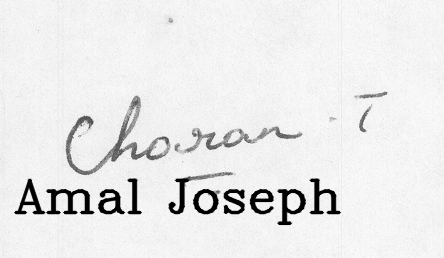 Charan . T
Amal Joseph